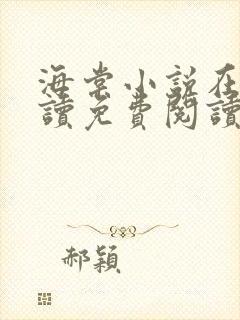 海棠小說在
讀免費閱讀
郝穎